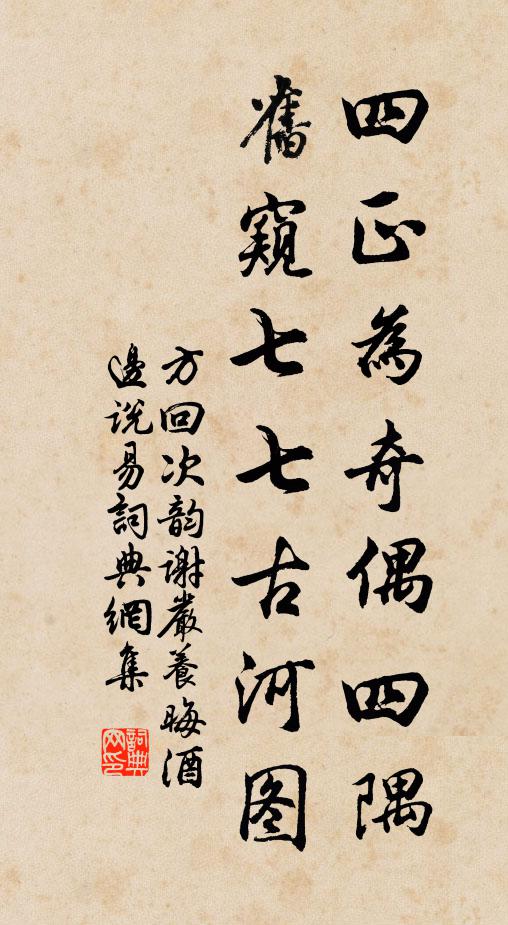 四正為奇偶四隅
舊窺七七古河图
方回次韵謝嚴養晦酒
邊说易詞典網集
詞典
网印